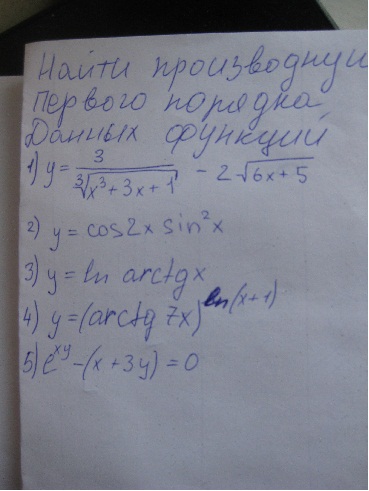 Найти производную
первого порядка
Данных функций
1) y = 3/∛(x³+3x+1) - 2√(6x+5)
2) y = cos2x sin²x
3) y = ln arctgx
4) y = (arctg 7x)^ln(x+1)
5) e^xy - (x+3y) = 0